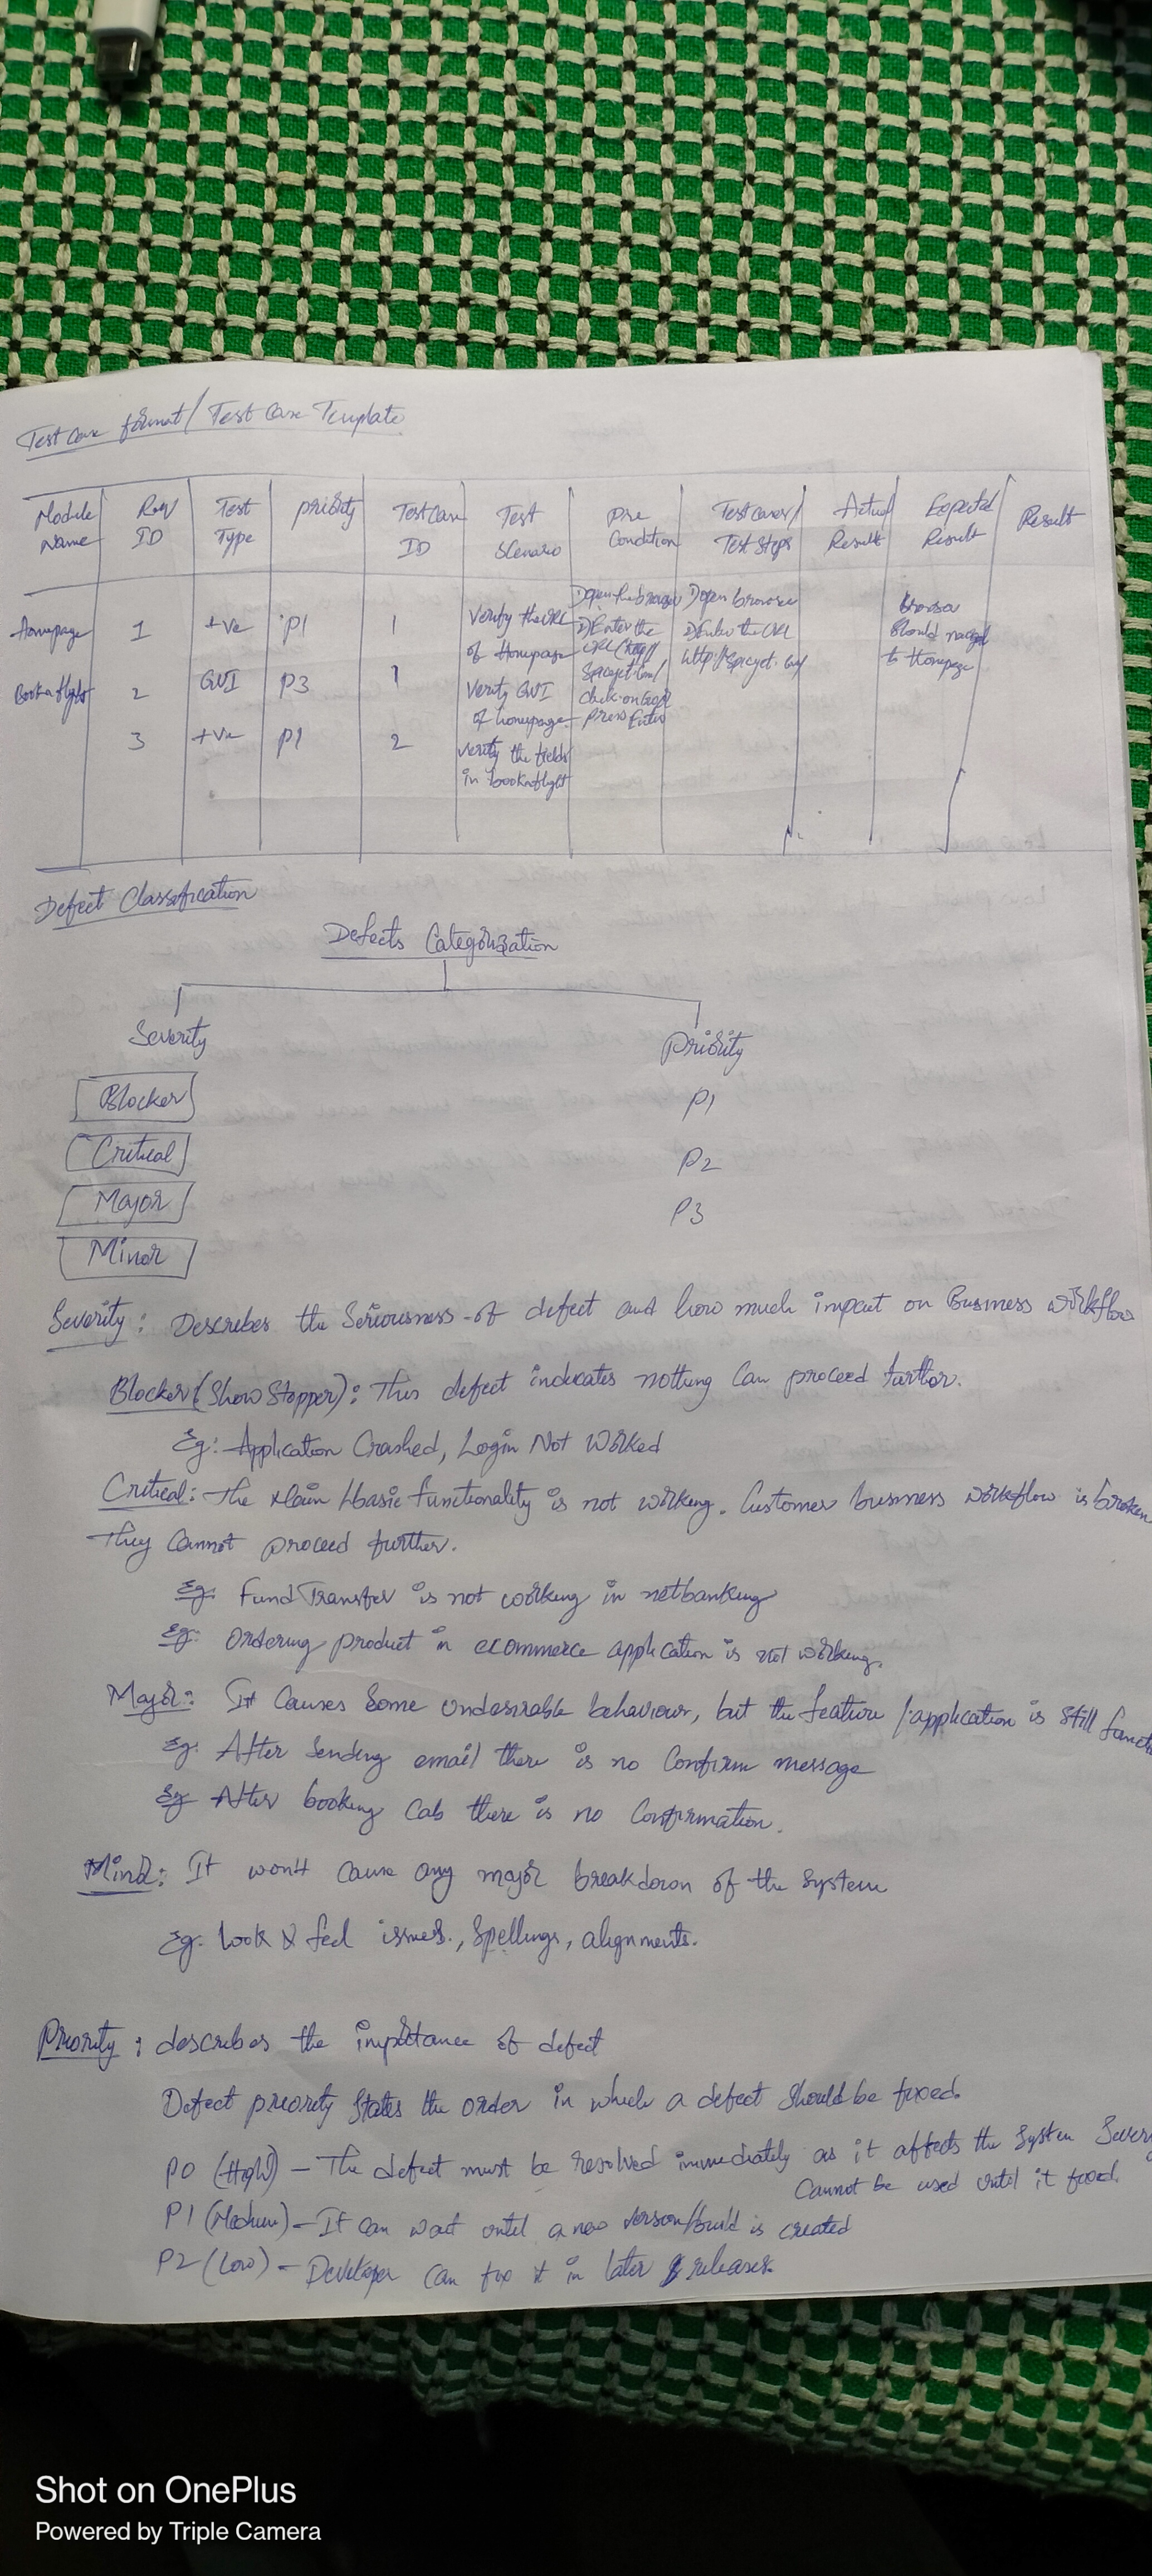 Test case format / Test Case Template
Module Name | Req ID | Test Type | priority | Test case ID | Test Scenario | Pre Condition | Test cases/ Test Steps | Actual Result | Expected Result | Result
Homepage | 1 | +ve | P1 | 1 | Verify the URL of Homepage | 1) open the browser 2) Enter the URL (http:// Spicejet.com/ click on Go or press Enter | 1) open browser 2) Enter the URL http://Spicejet.com/ | | browser should navigate to Homepage
Book a flight | 2 | GUI | P3 | 1 | Verify GUI of homepage
3 | +ve | P1 | 2 | verify the fields in book a flight
Defect Classification
Defects Categorization
Severity Priority
Blocker P1
Critical P2
Major P3
Minor
Severity : Describes the Seriousness of defect and how much impact on Business workflow
Blocker (Show Stopper) : This defect indicates nothing Can proceed further.
Eg: Application Crashed, Login Not Worked
Critical : The Main / basic functionality is not working. Customer business workflow is broken
They Cannot proceed further.
Eg: Fund Transfer is not working in netbanking
Eg: Ordering product in ecommerce application is not working.
Major : It Causes Some undesirable behaviour, but the feature / application is Still
Eg. After Sending email there is no Confirm message
Eg After booking Cab there is no Confirmation.
Minor : It won't cause any major breakdown of the System
Eg. Look & feel issues., Spellings, alignments.
Priority : describes the importance of defect
Defect priority States the order in which a defect Should be fixed.
P0 (High) – The defect must be resolved immediately as it affects the System
Cannot be used until it fixed.
P1 (Medium) – It can wait until a new version/build is created
P2 (Low) – Developer can fix it in later releases.
Shot on OnePlus
Powered by Triple Camera